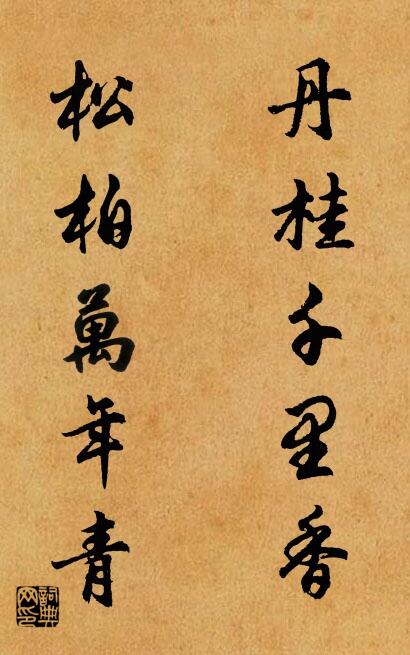 丹桂千里香
松柏萬年青
詞典网印